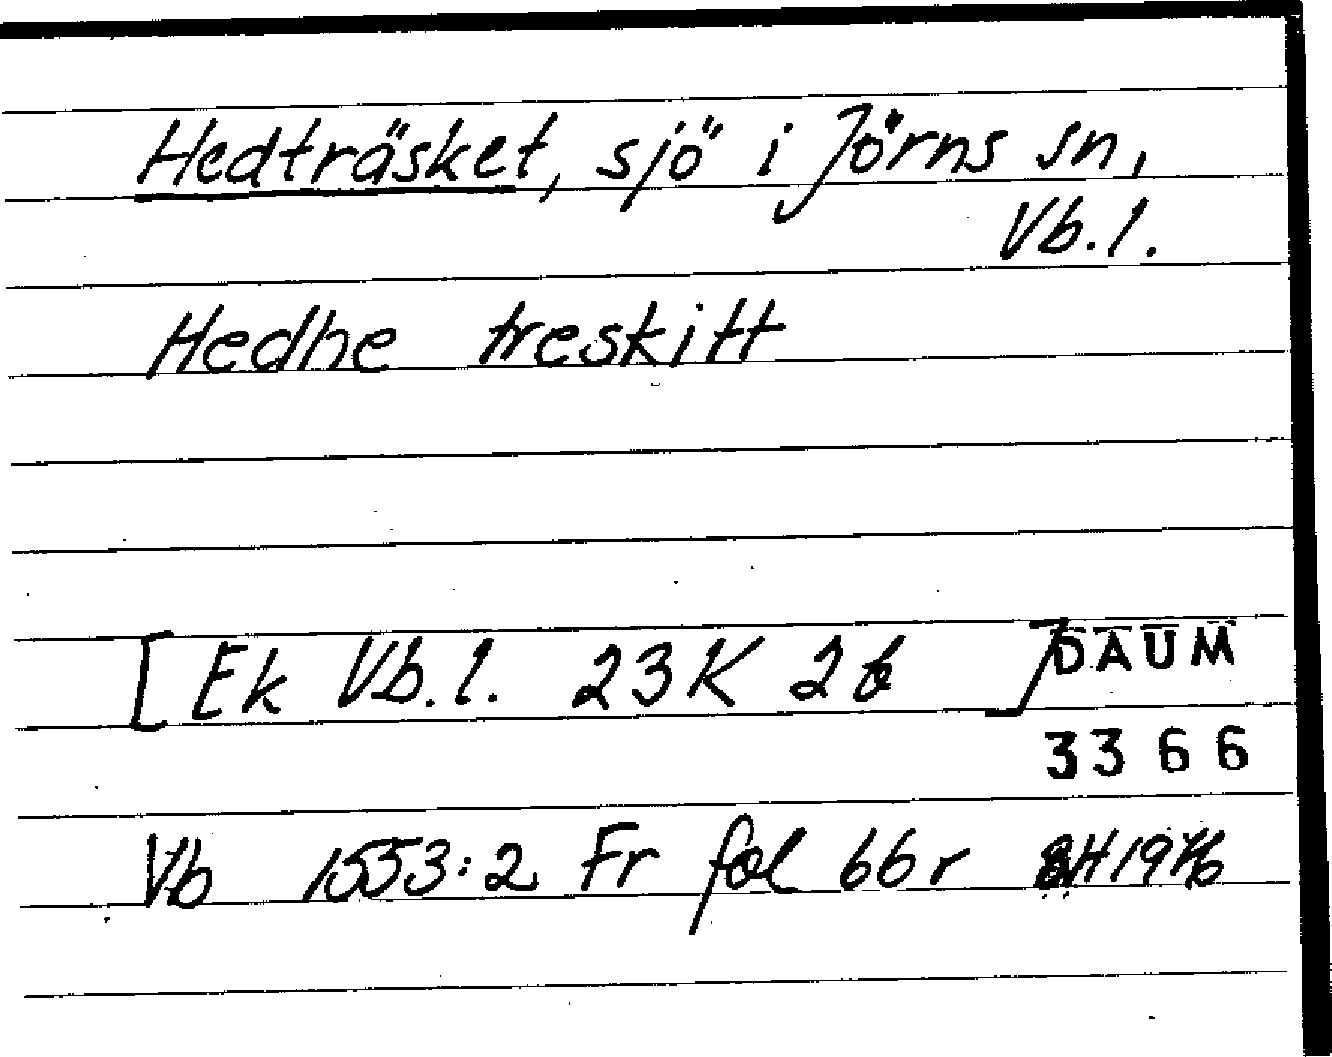 Hedträsket, sjö i Jörns sn,
Vb.l.
Hedhe treskitt
[Ek Vb.l. 23K 2b ] DAUM
3366
Vb 1553:2 Fr fol 66r BH 1976